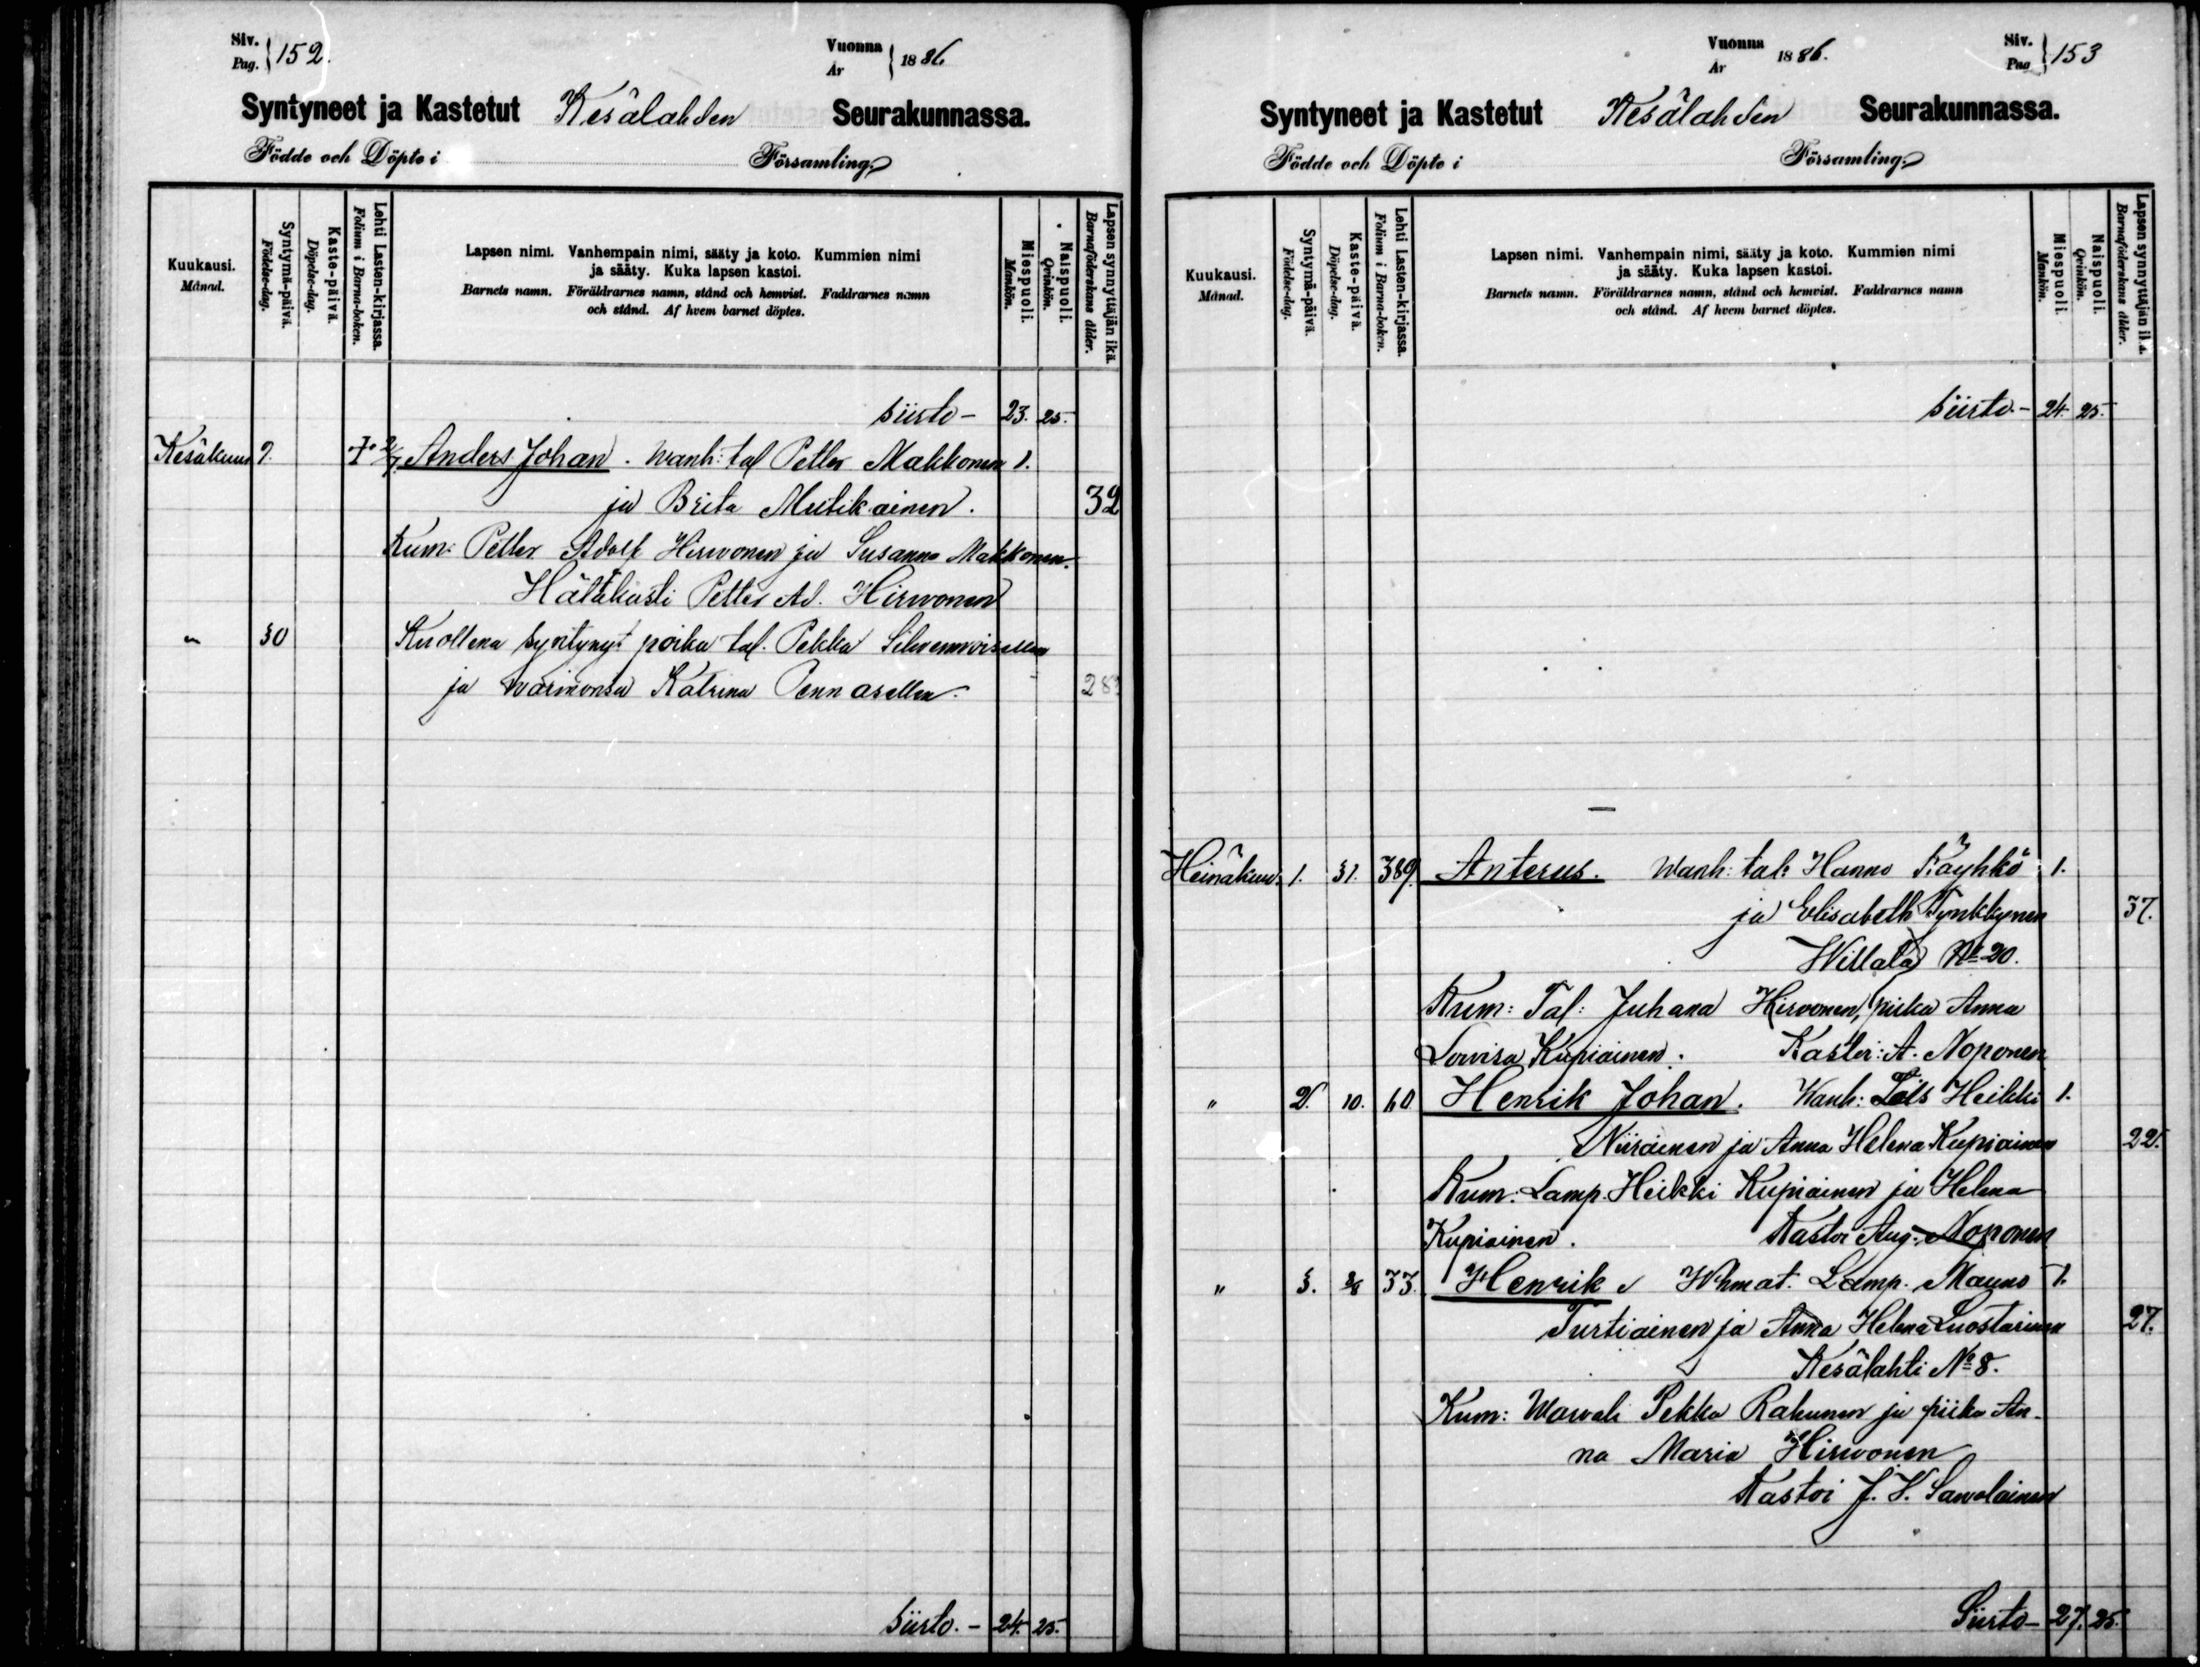 Siv. Pag. } 152.
Vuonna År } 1886.
Syntyneet ja Kastetut Kesälahden Seurakunnassa.
Födde och Döpte i Församling.
Kuukausi. Månad.
Syntymä-päivä. Födelse-dag.
Kaste-päivä. Döpelse-dag.
Lehti Lasten-kirjassa. Folium i Barna-boken.
Lapsen nimi. Vanhempain nimi, sääty ja koto. Kummien nimi
ja sääty. Kuka lapsen kastoi.
Barnets namn. Föräldrarnes namn, stånd och hemvist. Faddrarnes namn
och stånd. Af hvem barnet döptes.
Miespuoli. Mankön.
Naispuoli. Qvinkön.
Lapsen synnyttäjän ikä. Barnaföderskans ålder.
Siirto - 23. 25.
Kesäkuu 7. Anders Johan. Wanh: tal Petter Makkonen 1.
ja Brita Mutikainen. 32
Kum: Petter Adolf Hirvonen ja Susanna Makkonen.
Hätäkasti Petter Ad. Hirwonen
" 30 Kuollena syntynyt poika tal. Pekka
ja waimonsa Katrina Pennasellen. 28
Siirto. - 24. 25.
Vuonna År 1886.
Siv. Pag } 153
Syntyneet ja Kastetut Kesälahden Seurakunnassa.
Födde och Döpte i Församling.
Kuukausi. Månad.
Syntymä-päivä. Födelse-dag.
Kaste-päivä. Döpelse-dag.
Lehti Lasten-kirjassa. Folium i Barna-boken.
Lapsen nimi. Vanhempain nimi, sääty ja koto. Kummien nimi
ja sääty. Kuka lapsen kastoi.
Barnets namn. Föräldrarnes namn, stånd och hemvist. Faddrarnes namn
och stånd. Af hvem barnet döptes.
Miespuoli. Mankön.
Naispuoli. Qvinkön.
Lapsen synnyttäjän ikä. Barnaföderskans ålder.
Siirto. - 24. 25.
Heinäkuu 1. 31. 389. Anterus. Wanh: tal: Hanno Käyhkö 1.
ja Elisabeth Tynkkynen 37.
Willala № 20.
Kum: Tal: Juhana Hirvonen, piika Anna
Lovisa Kupiainen. Kastoi: A. Noponen
" 2. 10. 60 Henrik Johan. Wanh: Heikki 1.
Niiranen ja Anna Helena Kupiainen 22.
Kum: Lamp. Heikki Kupiainen ja Helena
Kupiainen. Kastoi Aug. Noponen
" 3. 2/8 33. Henrik Whmat. Lamp. Mauno 1.
Turtiainen ja Anna Helena Luostarinen 27.
Kesälahti № 8.
Kum: Wavali Pekka Rahunen ja piika An-
na Maria Hirwonen
Kastoi J. V. Sawolainen
Siirto - 27. 25.